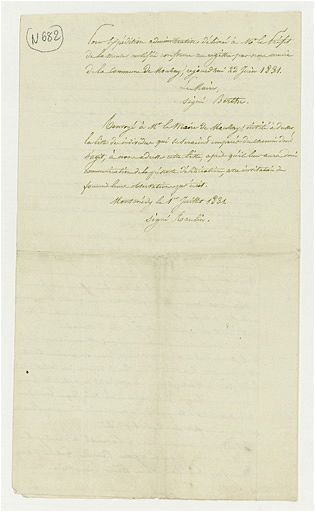 N 682
Pour Expédition administrative délivré à Mr le Préfet
de la Meuse certifié conforme au registre par nous maire
de la Commune de Mouzay, aujourd'hui 22 Juin 1831.
Le Maire,
Signé Berthe.
Renvoyé à Mr le Maire de Mouzay, invité à
la liste des individus qui se seraient emparés du terrain dont
s'agit, à nous adresser cette liste, après qu'il leur aura donné
communication de la présente délibération, avec invitation de
fournir leurs observations par écrit.
Montmédy le 1er Juillet 1831
Signé